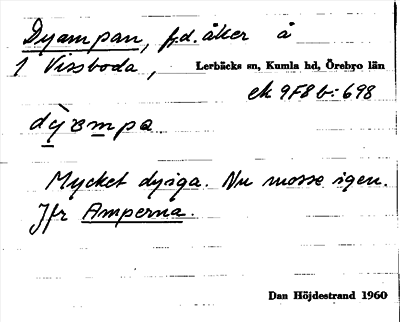 Dyampan, f.d. åker å
1 Vissboda, Lerbäcks sn, Kumla hd, Örebro län
ek 9F8b:698
dỳampa
Mycket dyiga. Nu mosse igen.
Jfr Amperna.
Dan Höjdestrand 1960